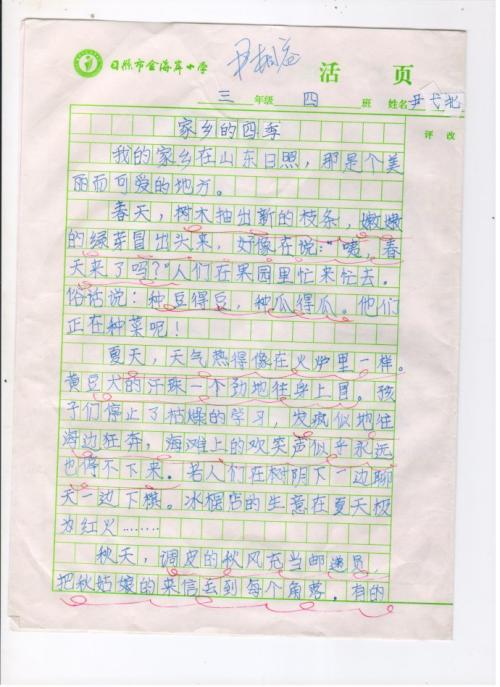 日照市金海岸小学
活 页
三 年级 四 班 姓名
评 改
家乡的四季
我的家乡在山东日照，那是个美
丽而可爱的地方。
春天，树木抽出新的枝条，嫩嫩
的绿芽冒出头来，好像在说："咦，春
天来了吗？"人们在果园里忙来忙去。
俗话说：种豆得豆，种瓜得瓜。他们
正在种菜呢！
夏天，天气热得像在火炉里一样。
黄豆大的汗珠一个劲地往身上冒。孩
子们停止了枯燥的学习，发疯似地往
海边狂奔，海滩上的欢笑声似乎永远
也停不下来。老人们在树阴下一边聊
天一边下棋。冰棍店的生意在夏天极
为红火……
秋天，调皮的秋风充当邮递员，
把秋姑娘的来信丢到每个角落。有的